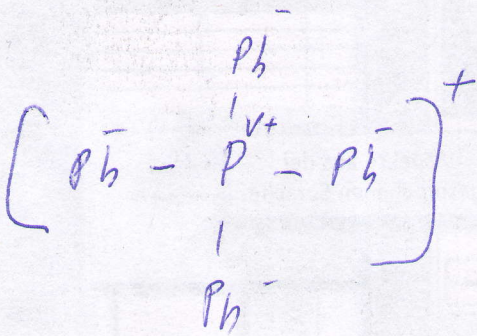 Ph⁻
( Ph⁻ - P^V+ - Ph⁻ )⁺
Ph⁻